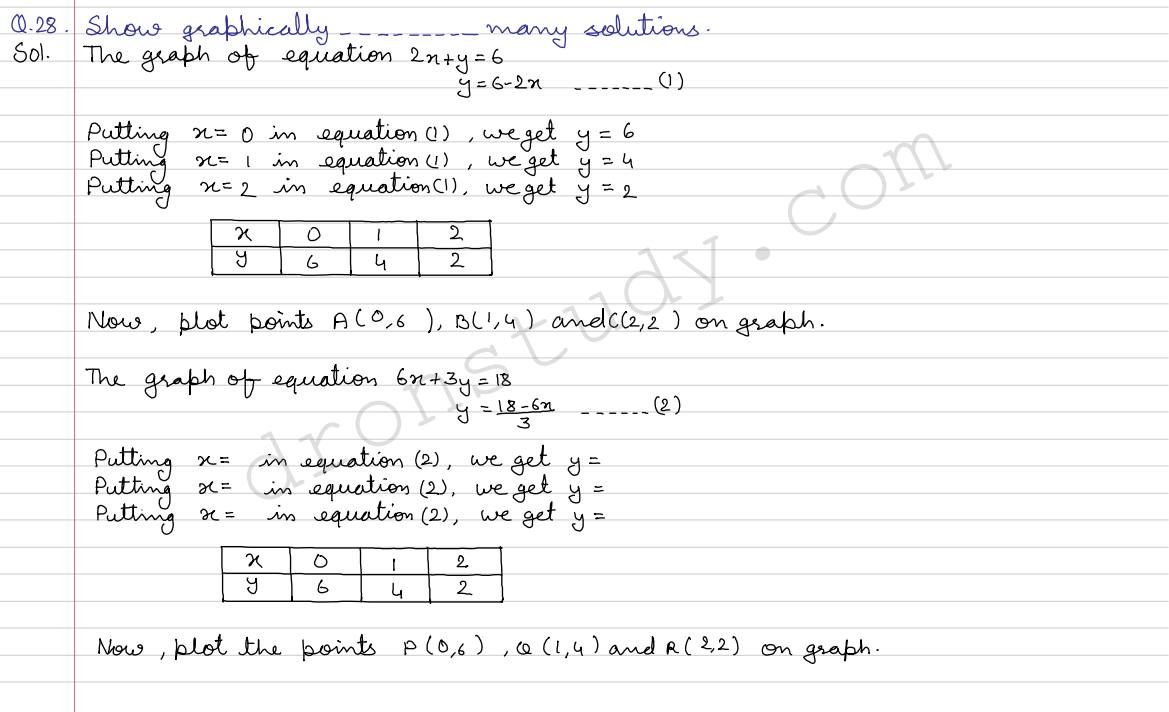 Q.28. Show graphically --------- many solutions.
Sol. The graph of equation 2x+y=6
y=6-2x ------- (1)
Putting x= 0 in equation (1), we get y = 6
Putting x= 1 in equation (1), we get y = 4
Putting x=2 in equation (1), we get y = 2
x 0 1 2
y 6 4 2
Now, plot points A(0,6), B(1,4) and C(2,2) on graph.
The graph of equation 6x+3y=18
y = 18-6x/3 ------ (2)
Putting x= in equation (2), we get y =
Putting x= in equation (2), we get y =
Putting x= in equation (2), we get y =
x 0 1 2
y 6 4 2
Now, plot the points P(0,6), Q(1,4) and R(2,2) on graph.
dronstudy.com